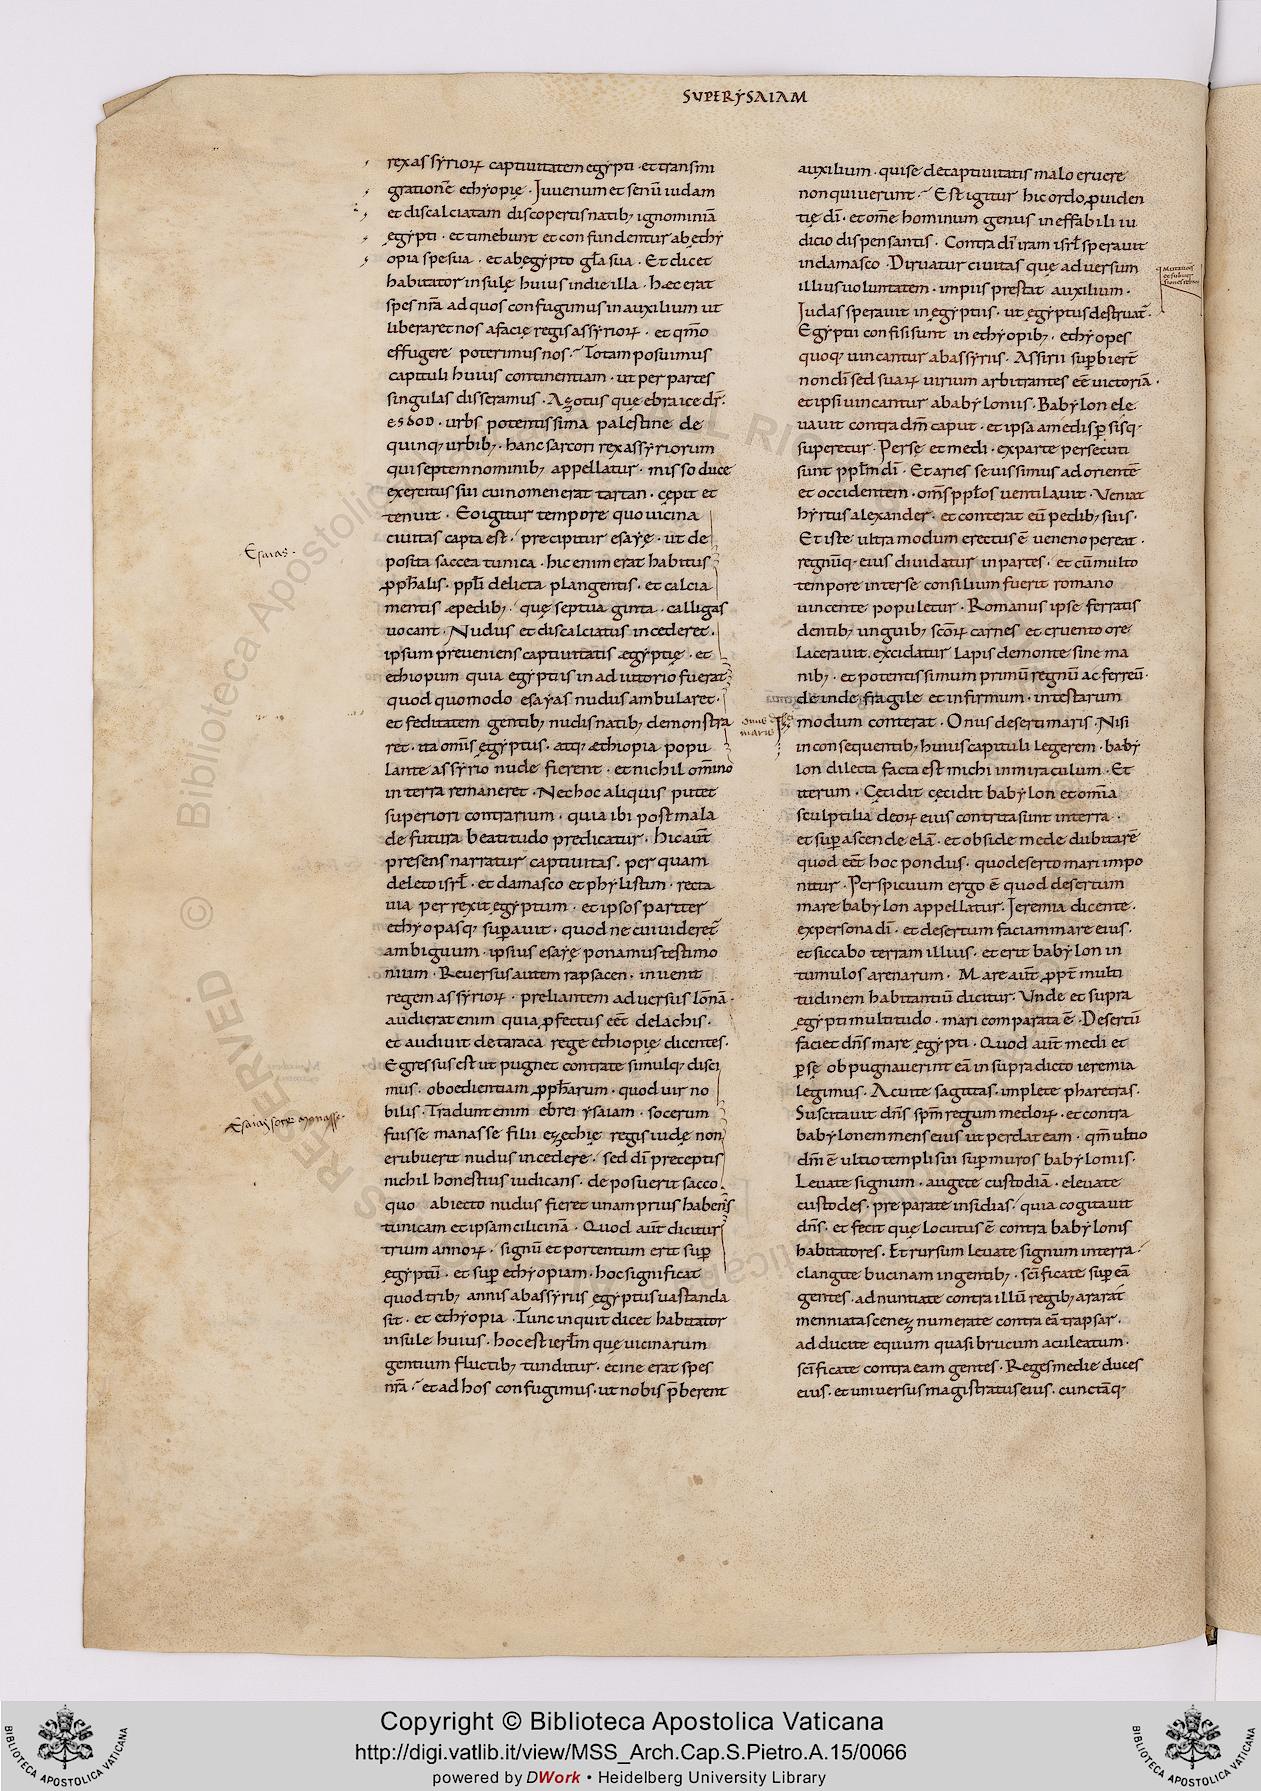 SUPER YSAIAM
rex assyrioꝝ captiuitatem egypti · et transmi
grationẽ ethyopię · Iuuenum et senũ nudam
et discalciatam discopertis natibꝫ ignominiã
ęgypti · et timebunt et confundentur ab ethy
opia spe sua · et ab egypto gl̃a sua · Et dicet
habitator insulę huius in die illa · hæc erat
spes nr̃a ad quos confugimus in auxilium ut
liberaret nos a facię regis assyrioꝝ · et qm̃o
effugere poterimus nos · Totam posuimus
capituli huius continentiam · ut per partes
singulas disseramus · Azotus quę ebraice dr̃ ·
esdod · urbs potentissima palestine de
quinqꝫ urbibꝫ · hanc sarcon rex assyriorum
qui septem nominibꝫ appellatur · misso duce
exercitus sui cui nomen erat tartan · cępit et
tenuit · Eo igitur tempore quo uicina
ciuitas capta est · precipitur esayę · ut de
posita saccea tunica · hic enim erat habitus
ꝓph̃alis · ppl̃i delicta plangentis · et calcia
mentis æ pedibꝫ · quę septuaginta · calligas
uocant · Nudus et discalciatus incederet ·
ipsum preueniens captiuitatis ægyptię · et
ethiopum quia egyptiis in adiutorio fuerat
quod quomodo esayas nudus ambularet ·
et feditatem gentibꝫ nudis natibꝫ demonstra
ret · ita om̃is ęgyptus · atqꝫ æthiopia popu
lante assyrio nude fierent · et nichil om̃ino
in terra remaneret · Nec hoc aliquis putet
superiori contrarium · quia ibi post mala
de futura beatitudo predicatur · hic aũt
presens narratur captiuitas · per quam
deleto isrł · et damasco et phylistim · recta
uia perrexit ęgyptum · et ipsos pariter
ethyopasqꝫ suꝑauit · quod ne cui uideret̃
ambiguum · ipsius esayę ponamus testimo
nium · Reuersus autem rapsacen · inuenit
regem assyrioꝝ · preliantem aduersus lõnã ·
audierat enim quia ꝓfectus eẽt de lachis ·
et audiuit de taraca rege ethiopię dicentes ·
Egressus est ut pugnet contra te simulqꝫ disci
mus · oboedientiam ꝓph̃arum · quod uir no
bilis · Tradunt enim ebrei ysaiam · socerum
fuisse manasse filii ezzechię regis iudę non
erubuerit nudus incedere · sed dĩ preceptis
nichil honestius iudicans · deposuerit sacco ·
quo abiecto nudus fieret unam prius habens
tunicam et ipsam cilicinã · Quod aũt dicitur
trium annoꝝ · signũ et portentum erit suꝑ
ęgyptũ · et suꝑ ethyopiam · hoc significat
quod tribꝫ annis ab assyriis ęgyptus uastanda
sit · et ethyopia · Tunc inquit dicet habitator
insule huius · hoc est ierł̃m que uicinarum
gentium fluctibꝫ tunditur · ecine erat spes
nr̃a · et ad hos confugimus · ut nobis p̃berent
Esaias ·
Æsaias socer manasse ·
auxilium · qui se de captiuitatis malo eruere
non quiuerunt · Est igitur hic ordo ꝓuiden
tię dĩ · et om̃e hominum genus ineffabili iu
dicio dispensantis · Contra dĩ iram isrł sperauit
in damasco · Diruatur ciuitas quę aduersum
illius uoluntatem · impiis prestat auxilium ·
Iudas sperauit in ęgyptiis · ut ęgyptus destruat̃ ·
Egyptii confisi sunt in ethyopibꝫ · ethyopes
quoqꝫ uincantur ab assyriis · Assirii suꝑbierẽ
non dĩ sed suaꝝ uirium arbitrantes eẽe uictoriã ·
et ipsi uincantur a babyloniis · Babylon ele
uauit contra dm̃ caput · et ipsa a medis ꝑsisqꝫ
superetur · Perse et medi · ex parte persecuti
sunt ppl̃m dĩ · Et aries seuissimus ad orientẽ
et occidentem · om̃s ppl̃os uentilauit · Veniat
hyrtus alexander · et conterat eũ pedibꝫ suis ·
Et iste ultra modum erectus ẽ ueneno pereat ·
regnũqꝫ eius diuidatur in partes · et cũ multo
tempore inter se consilium fuerit romano
uincente populetur · Romanus ipse ferratis
dentibꝫ unguibꝫ sc̃oꝝ carnes et cruento ore
lacerauit · excidatur lapis de monte sine ma
nibꝫ · et potentissimum primũ regnũ ac ferreũ ·
deinde fragile et infirmum · in testarum
modum conterat · Onus deserti maris · Nisi
in consequentibꝫ huius capituli legerem · baby
lon dilecta facta est michi in miraculum · Et
iterum · Cęcidit cęcidit babylon et om̃ia
sculptilia deoꝝ eius contrita sunt in terra ·
et suꝑ ascende elã · et obside mede dubitarẽ
quod eẽt hoc pondus · quo deserto mari impo
nitur · Perspicuum ergo ẽ quod desertum
mare babylon appellatur · Ieremia dicente ·
ex persona dĩ · et desertum faciam mare eius ·
et siccabo terram illius · et erit babylon in
tumulos arenarum · Mare aũt ꝓpt̃ multi
tudinem habitantiũ dicitur · Vnde et supra
ęgypti multitudo · mari comparata ẽ · Desertũ
faciet dñs mare ęgypti · Quod aũt medi et
ꝑsę obpugnauerint eã in supradicto ieremia
legimus · Acuite sagittas · implete pharetras ·
Suscitauit dñs sp̃m regum medoꝝ · et contra
babylonem mens eius ut perdat eam · qm̃ ultio
dm̃ ẽ ultio templi sui suꝑ muros babylonis ·
Leuate signum · augete custodiã · eleuate
custodes · preparate insidias · quia cogitauit
dñs · et fecit quę locutus ẽ contra babylonis
habitatores · Et rursum leuate signum in terra ·
clangite bucina in gentibꝫ · sc̃ificate suꝑ eã
gentes · adnuntiate contra illũ regibꝫ ararat
menni atascenez numerate contra eã trapsar ·
adducite equum quasi brucum aculeatum ·
sc̃ificate contra eam gentes · Reges medie duces
eius · et uniuersus magistratus eius · cunctãqꝫ
onus
maris
Copyright © Biblioteca Apostolica Vaticana
http://digi.vatlib.it/view/MSS_Arch.Cap.S.Pietro.A.15/0066
powered by DWork • Heidelberg University Library
BIBLIOTECA APOSTOLICA VATICANA
BIBLIOTECA APOSTOLICA VATICANA